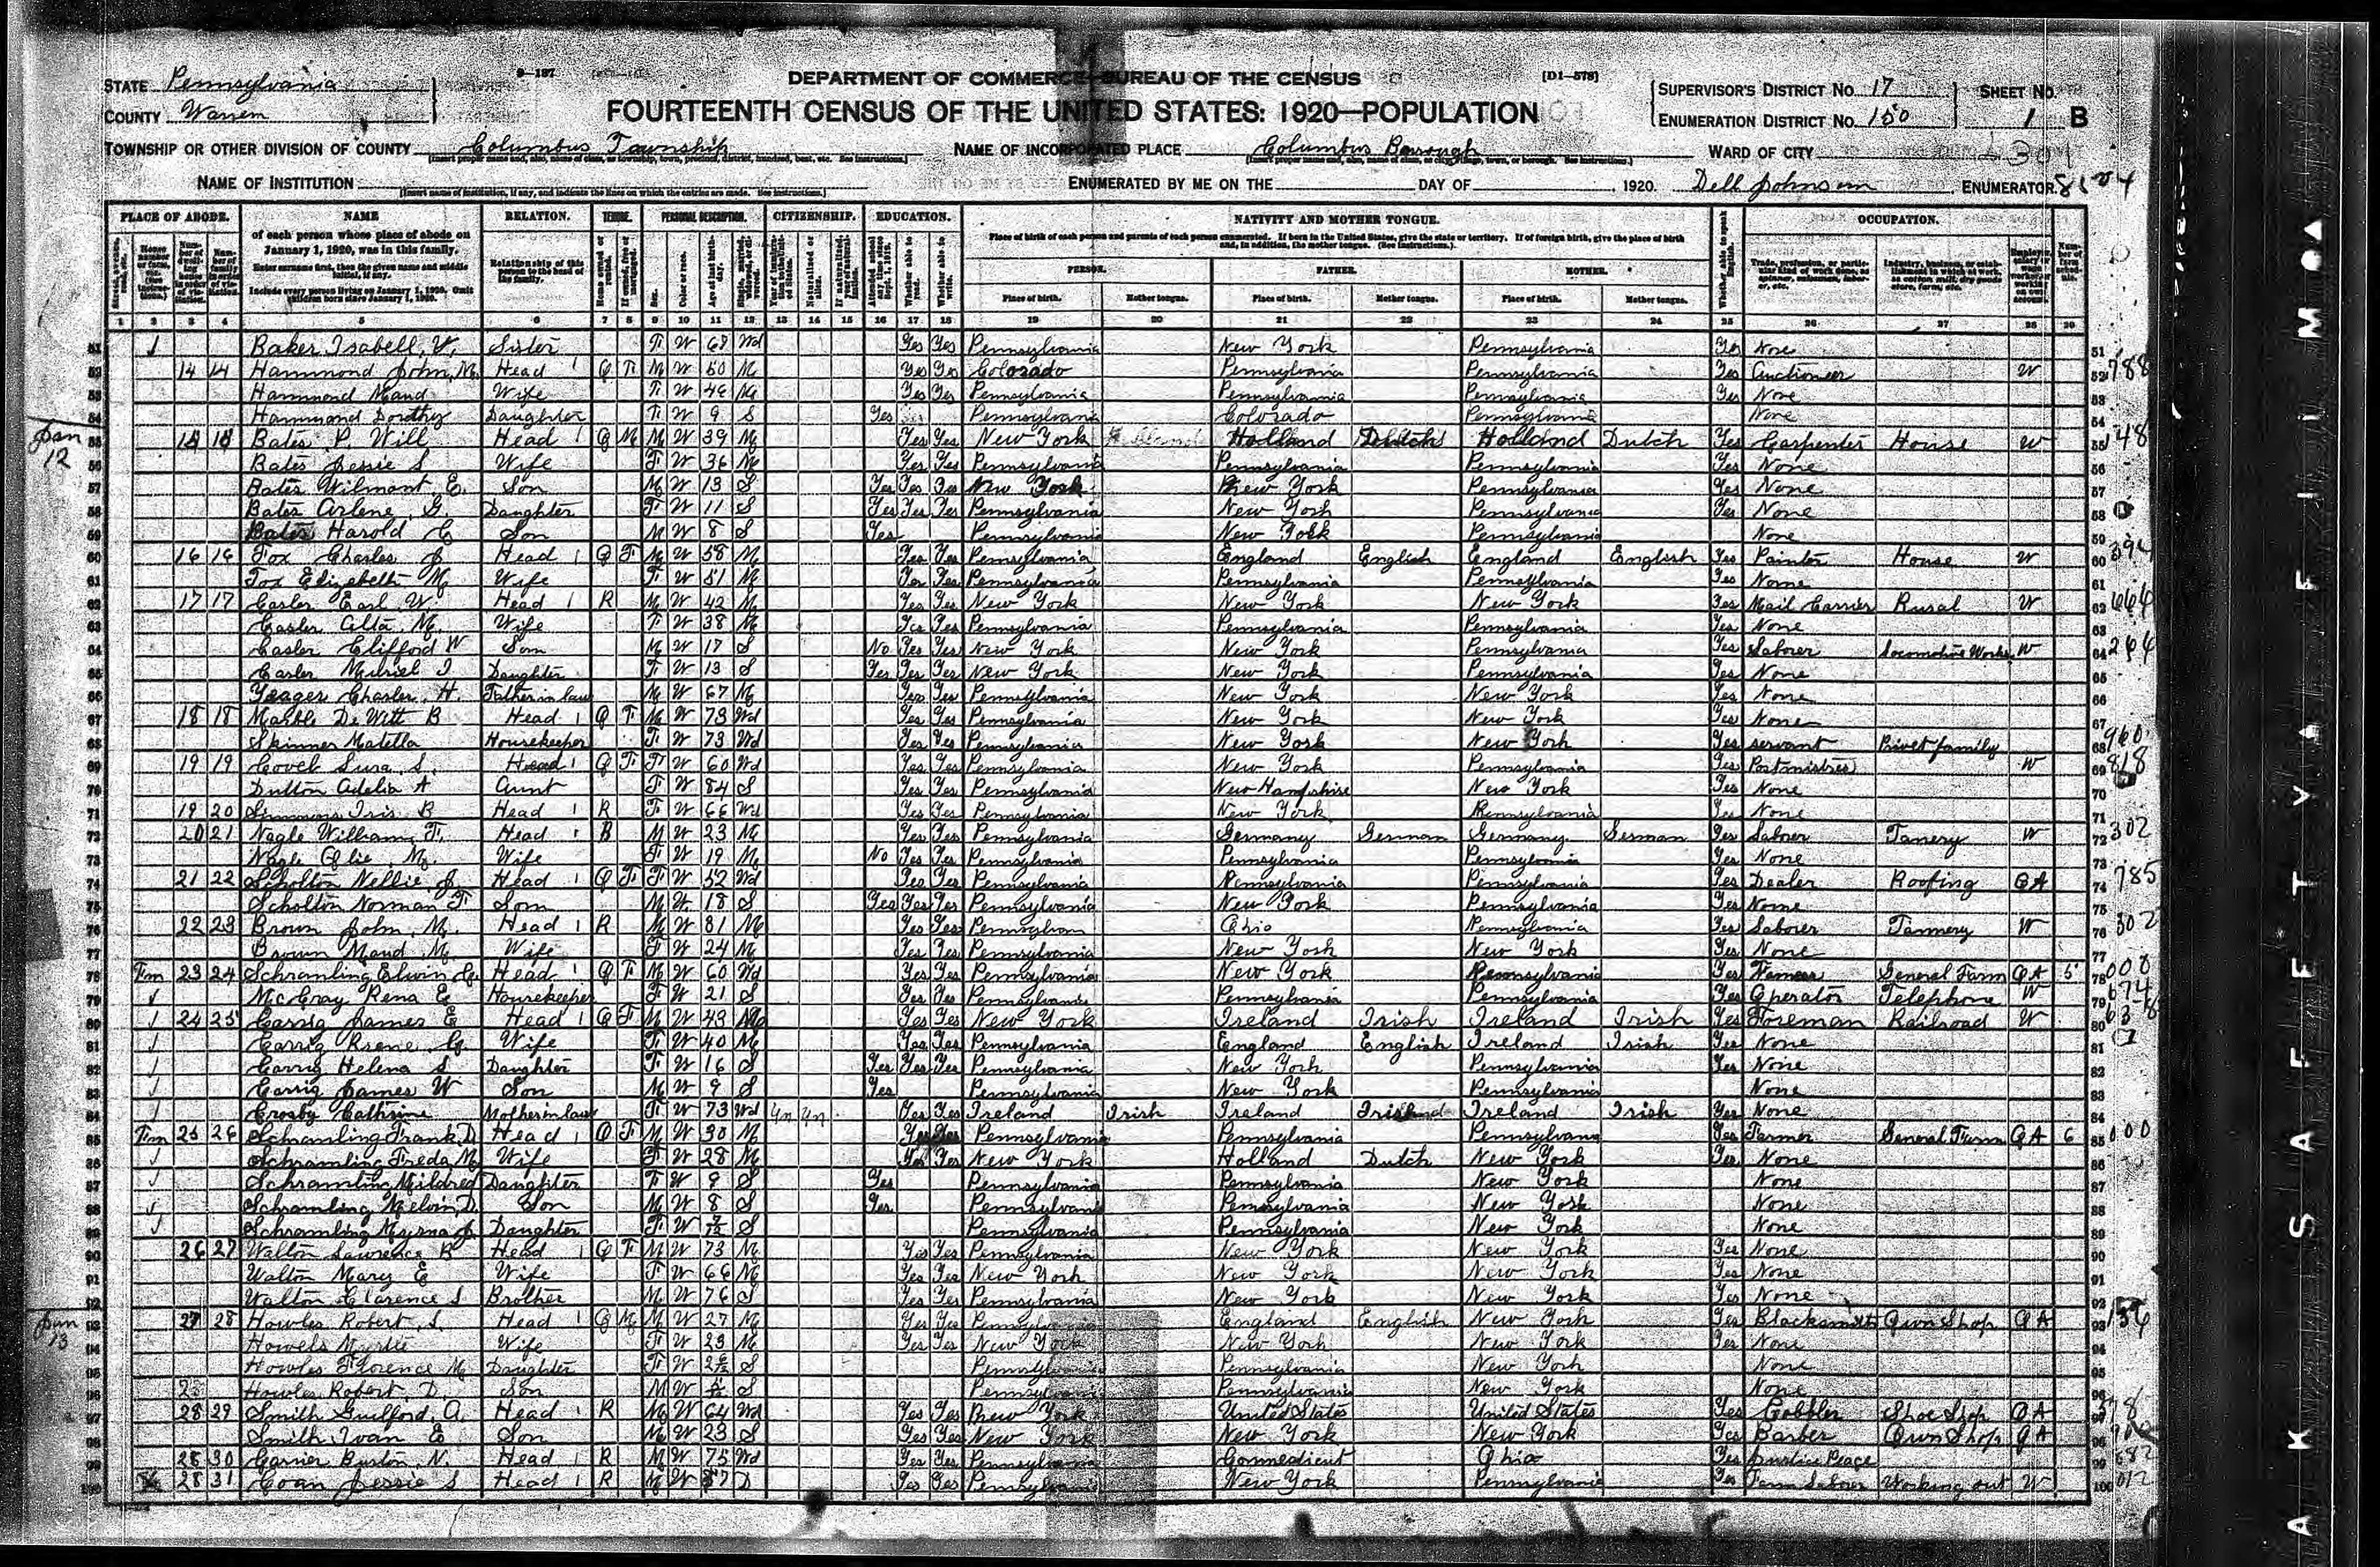 STATE Pennsylvania 9-137 DEPARTMENT OF COMMERCE—BUREAU OF THE CENSUS [D1-578] SUPERVISOR'S DISTRICT No. 17 SHEET No.
COUNTY Warren FOURTEENTH CENSUS OF THE UNITED STATES: 1920—POPULATION ENUMERATION DISTRICT No. 150 1 B
TOWNSHIP OR OTHER DIVISION OF COUNTY Columbus Township NAME OF INCORPORATED PLACE Columbus Borough WARD OF CITY
NAME OF INSTITUTION ENUMERATED BY ME ON THE DAY OF , 1920. Dell Johnson ENUMERATOR.
PLACE OF ABODE. NAME RELATION. TENURE. PERSONAL DESCRIPTION. CITIZENSHIP. EDUCATION. NATIVITY AND MOTHER TONGUE. OCCUPATION.
of each person whose place of abode on January 1, 1920, was in this family.
Enter surname first, then the given name and middle initial, if any.
Include every person living on January 1, 1920. Omit children born since January 1, 1920.
Relationship of this person to the head of the family.
Place of birth of each person and parents of each person enumerated. If born in the United States, give the state or territory. If of foreign birth, give the place of birth and, in addition, the mother tongue. (See Instructions.)
PERSON. FATHER. MOTHER.
Place of birth. Mother tongue. Place of birth. Mother tongue. Place of birth. Mother tongue.
1 2 3 4 5 6 7 8 9 10 11 12 13 14 15 16 17 18 19 20 21 22 23 24 25 26 27 28 29
51 Baker Isabell, V. Sister F W Wd Yes Yes Pennsylvania New York Pennsylvania Yes None 51
52 14 14 Hammond John, M. Head O F M W 50 M Yes Yes Colorado Pennsylvania Pennsylvania Yes Auctioneer W 52 788
53 Hammond Maud Wife F W 46 M Yes Yes Pennsylvania Pennsylvania Pennsylvania Yes None 53
54 Hammond Dorothy Daughter F W 9 S Yes Pennsylvania Colorado Pennsylvania None 54
Jan 12 55 Bates P. Will Head O M M W 39 M Yes Yes New York Holland Dutch Holland Dutch Yes Carpenter House W 55 48
56 Bates Jessie S Wife F W 36 M Yes Yes Pennsylvania Pennsylvania Pennsylvania Yes None 56
57 Bates Wilmont E. Son M W 13 S Yes Yes Yes New York New York Pennsylvania Yes None 57
58 Bates Arlene, G. Daughter F W 11 S Yes Yes Yes Pennsylvania New York Pennsylvania Yes None 58
59 Bates Harold C Son M W 8 S Yes Pennsylvania New York Pennsylvania None 59
60 16 16 Fox Charles J Head O F M W 58 M Yes Yes Pennsylvania England English England English Yes Painter House W 60 394
61 Fox Elizabeth M Wife F W 51 M Yes Yes Pennsylvania Pennsylvania Pennsylvania Yes None 61
62 17 17 Casler Earl W. Head R M W 42 M Yes Yes New York New York New York Yes Mail Carrier Rural W 62
63 Casler Alta M. Wife F W 38 M Yes Yes Pennsylvania Pennsylvania Pennsylvania Yes None 63
64 Casler Clifford W Son M W 17 S No Yes Yes New York New York Pennsylvania Yes Laborer Locomotive Works W 64
65 Casler Muriel I Daughter F W 13 S Yes Yes Yes New York New York Pennsylvania Yes None 65
66 Yeager Charles, H. Father in law M W 67 M Yes Yes Pennsylvania New York New York Yes None 66
67 18 18 Marble De Witt B Head O F M W 73 Wd Yes Yes Pennsylvania New York New York Yes None 67
68 Skinner Matella Housekeeper F W 73 Wd Yes Yes Pennsylvania New York New York Yes servant Privet family 68 960
69 19 19 Covel Sura, S. Head O F F W 60 Wd Yes Yes Pennsylvania New York Pennsylvania Yes Postmistres W 69 818
70 Dutton Adelia A Aunt F W 84 S Yes Yes Pennsylvania New Hampshire New York Yes None 70
71 19 20 Simmons Iris B Head R F W 66 Wd Yes Yes Pennsylvania New York Pennsylvania Yes None 71
72 20 21 Nagle William, F. Head R M W 23 M Yes Yes Pennsylvania Germany German Germany German Yes Laborer Tanery W 72 302
73 Nagle Olie, M. Wife F W 19 M No Yes Yes Pennsylvania Pennsylvania Pennsylvania Yes None 73
74 21 22 Scholton Nellie J Head O F F W 52 Wd Yes Yes Pennsylvania Pennsylvania Pennsylvania Yes Dealer Roofing OA 74 785
75 Scholton Norman F Son M W 18 S Yes Yes Yes Pennsylvania New York Pennsylvania Yes None 75
76 22 23 Brown John, M. Head R M W 31 M Yes Yes Pennsylvania Ohio Pennsylvania Yes Laborer Tannery W 76 302
77 Brown Maud, M. Wife F W 24 M Yes Yes Pennsylvania New York New York Yes None 77
78 Fm 23 24 Schramling Elwin Head O F M W 60 Wd Yes Yes Pennsylvania New York Pennsylvania Yes Farmer General Farm OA 5 78
79 McCray Rena E Housekeeper F W 21 S Yes Yes Pennsylvania Pennsylvania Pennsylvania Yes Operator Telephone W 79 674
80 24 25 Carrig James E Head O F M W 43 M Yes Yes New York Ireland Irish Ireland Irish Yes Foreman Railroad W 80
81 Carrig Wife F W 40 M Yes Yes Pennsylvania England English Ireland Irish Yes None 81
82 Carrig Helena S Daughter F W 16 S Yes Yes Yes Pennsylvania New York Pennsylvania Yes None 82
83 Carrig James W Son M W 9 S Yes Pennsylvania New York Pennsylvania None 83
84 Crosby Cathrine Mother in law F W 73 Wd Un Un Yes Yes Ireland Irish Ireland Irish Ireland Irish Yes None 84
85 Fm 25 26 Schramling Frank, D Head O F M W 30 M Yes Yes Pennsylvania Pennsylvania Pennsylvania Yes Farmer General Farm OA 6 85 000
86 Schramling Freda, M Wife F W 28 M Yes Yes New York Holland Dutch New York Yes None 86
87 Schramling Mildred Daughter F W 9 S Yes Pennsylvania Pennsylvania New York None 87
88 Schramling Melvin, D. Son M W 8 S Yes Pennsylvania Pennsylvania New York None 88
89 Schramling Myrna J. Daughter F W S Pennsylvania Pennsylvania New York None 89
90 26 27 Walton Lawrence B Head O F M W 73 M Yes Yes Pennsylvania New York New York Yes None 90
91 Walton Mary E Wife F W 66 M Yes Yes New York New York New York Yes None 91
92 Walton Clarence S Brother M W 76 S Yes Yes Pennsylvania New York New York Yes None 92
Jan 13 93 27 28 Howles Robert, S. Head O M M W 27 M Yes Yes Pennsylvania England English New York Yes Blacksmith Own Shop OA 93
94 Howels Myrtle Wife F W 23 M Yes Yes New York New York New York Yes None 94
95 Howles Florence M Daughter F W S Pennsylvania Pennsylvania New York None 95
96 Howles Robert, D. Son M W S Pennsylvania Pennsylvania New York None 96
97 28 29 Smith Guilford, A. Head R M W 64 Wd Yes Yes New York United States United States Yes Cobbler Shoe Shop OA 97
98 Smith Ivan E Son M W 23 S Yes Yes New York New York New York Yes Barber Own Shop OA 98
99 28 30 Garner Burton, N. Head R M W 75 Wd Yes Yes Pennsylvania Connedicut Ohio Yes Justice Peace 99 682
100 28 31 Coan Jessie S Head R M W D Yes Yes Pennsylvania New York Pennsylvania Yes Farm Laborer Working out W 100 012
A K SAFETY FILM